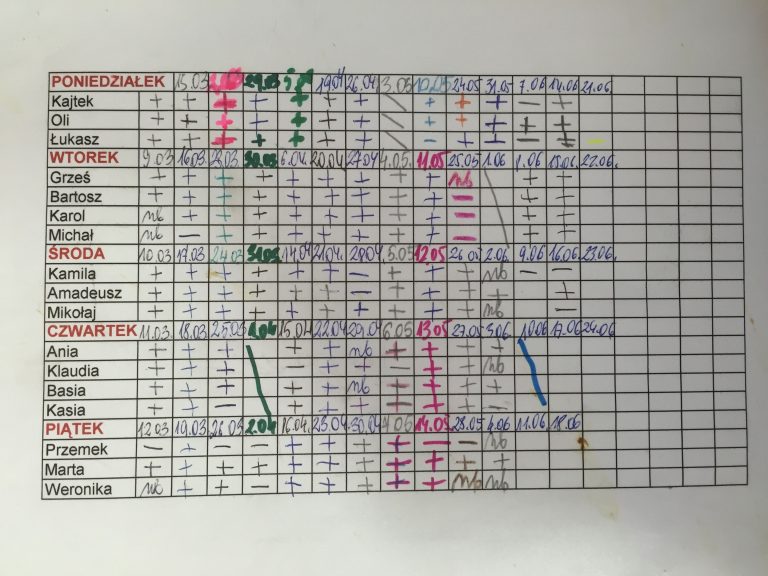 PONIEDZIAŁEK 15.03 29.03 19.04 26.04 3.05 10.05 24.05 31.05 7.06 14.06 21.06.
Kajtek + + + + + + + + + + — +
Oli + + + + + + + + + + + +
Łukasz + + + + + + + — + + — +
WTOREK 9.03 16.03 23.03 30.03 6.04 20.04 27.04 4.05. 11.05 25.05 1.06 15.06. 22.06.
Grześ + + + + + + + + + nb + +
Bartosz + + + + + + + + + — + +
Karol nb + + + + + + + + — + +
Michał nb — + + + + + + + — + +
ŚRODA 10.03 17.03 24.03 31.03 14.04 21.04. 5.05 12.05 26.05 2.06. 9.06 16.06 23.06.
Kamila + + + + + + — + + + nb — —
Amadeusz + + + + + + — + + + + +
Mikołaj + + + + + + + + + + nb +
CZWARTEK 11.03. 18.03 25.03 1.04 15.04 22.04 29.04 6.05 13.05 27.05 3.06. 10.06 17.06 24.06
Ania + + + + + nb + + + +
Klaudia + + + — + + — + + nb
Basia + + + + + nb + + + +
Kasia + + — + + + — + + +
PIĄTEK 12.03 19.03 26.03 2.04 16.04. 23.04 30.04 14.05 28.05 4.06 11.06 18.06
Przemek — + — — + + + + — — nb
Marta + + + + + + + + + + +
Weronika nb + + — + + + + + nb nb